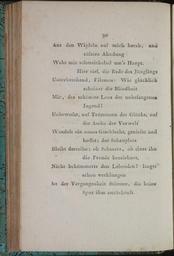 90
Aus den Wipfeln auf mich herab, und
süssere Ahndung
Weht mir schmeichelnd um's Haupt.
Hier rief, die Rede des Jünglings
Unterbrechend, Filemon: Wie glücklich
scheinet die Blindheit
Mir, das schönste Loos der unbefangenen
Jugend!
Unbewußt, auf Trümmern des Glücks, auf
der Asche der Vorwelt
Wandeln ein neues Geschlecht, genießt und
hoffet; der Schauplatz
Bleibt derselbe; ob Schmerz, ob einst ihn
die Freude bezeichnet,
Nicht bekümmerts den Lebenden! längst
schon verklungen
Ist der Vergangenheit Stimme, die keine
Spur ihm zurückließ.